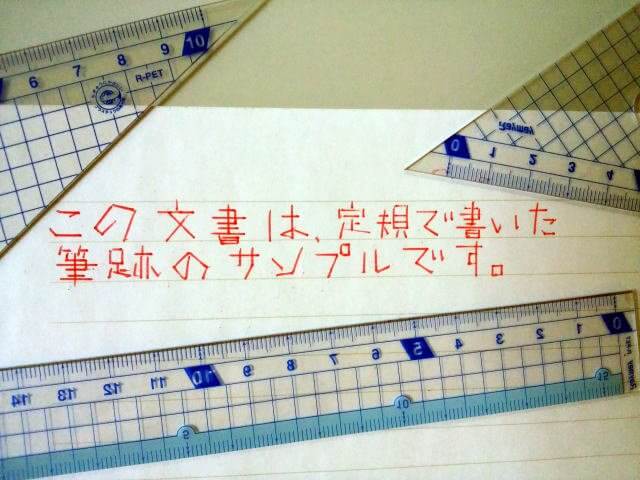 6 7 8 9 10
R-PET
Raymay
0 1 2 3 4
この文書は、定規で書いた
筆跡のサンプルです。
14 13 12 11 10 9 8 7 6 5 4 3 2 1 0
5 10 15